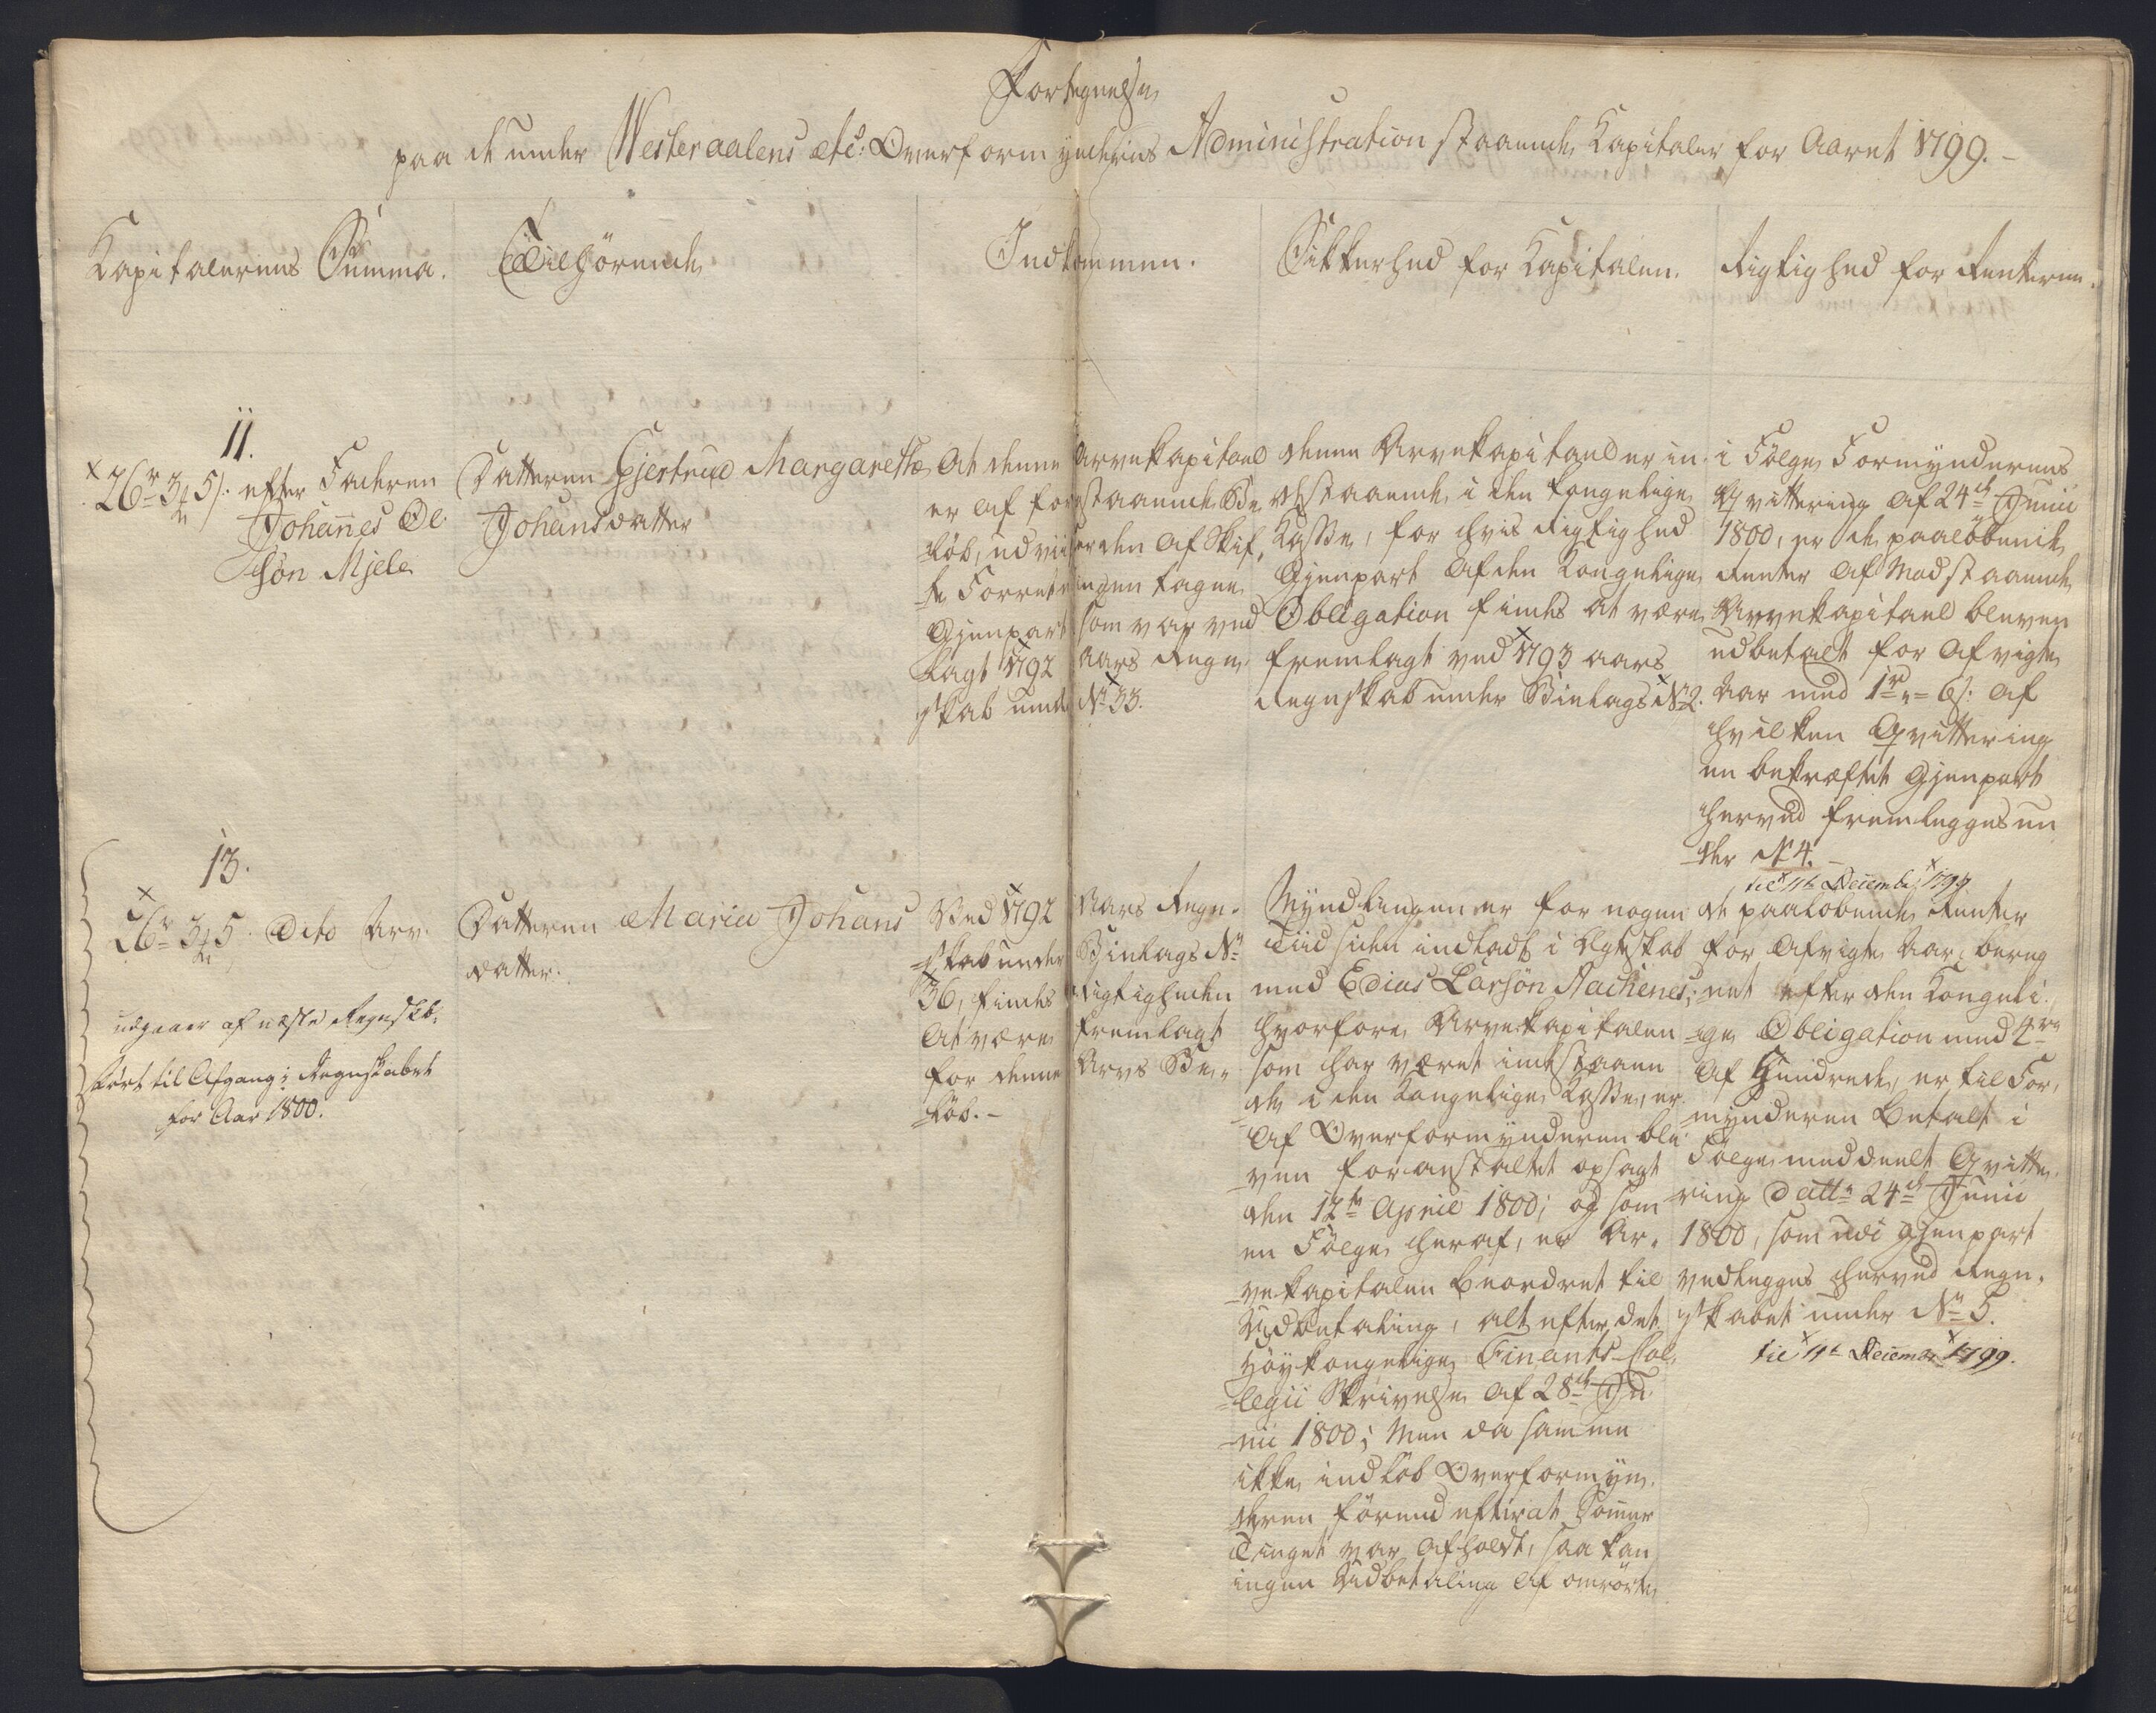 Fortegnelse
paa de under Westeraalens etc: Overformynderies Administration staaende Kapitaler for Aaret 1799.-
Kapitalernes Summa.
Tilhörende
Indkommen.
Sikkerhed for Kapitalen.
Rigtighed for Renterne.
11.
26r 3 5/: efter Faderen
Johannes Ol-
sön Mjele
Datteren Gjertrud Margarethe
Johansdatter
At denne Arvekapitael
er af forestaaende Be-
löb, udviiser den af Skif-
te Forretningen tagne
Gjenpart som var ved
lagt 1792 Aars Regn-
skab under No 33.
denne Arvekapitael er in-
destaaende i den kongelige
Kasse, for hvis Rigtighed
Gjenpart af den Kongelige
Obligation findes at være
fremlagt ved 1793 aars
Regnskab under Bielags No 2.
i Fölge Formynderens
Qvittering af 24de Junii
1800, er de paalöbende
Renter af Modstaaende
Arvekapitael bleven
udbetalt for afvigte
Aar med 1r - 6/: af
hvilken Qvittering
en bekræftet Gjenpart
herved fremlegges un-
der No 4. -
til 11te Decembr 1799
13.
26r 3 5. Dito Arv.
udgaaer af næste Regnskb.
fört til Afgang i Regnskabet
for Aar 1800.
Datteren Maria Johans
datter.
Ved 1792 Aars Regn-
skab under Bielags No
36, findes Rigtigheden
at være fremlagt
for denne Arvs Be-
löb. -
Myndlingen er for nogen
Tiid siden indladt i Egteskab
med Edias Larsön Aachenes;
hvorfore Arvekapitalen
som har været indestaaen
de i den Kongelige Kasse, er
af Overformynderen ble
ven foranstaltet opsagt
den 12te April 1800; og som
en Fölge heraf, er Ar-
vekapitalen beordret til
Udbetaling, alt efter det
Höykongelige Finants-Col-
legii Skrivelse af 28de Ju-
nii 1800; Men da samme
ikke indlöb Overformyn-
deren förend efterat Sommer
Tinget var afholdt, saa kan
ingen Udbetaling af omrörte
de paalöbende Renter
for afvigte Aar, bereg
net efter den Kongeli-
ge Obligation med 4re
af Hundrede, er til For-
mynderen betalt i
Fölge meddeelt Qvitte-
ring datt 24de Junii
1800, som udi Gjenpart
vedlegges herved Regn-
skabet under No 5.
til 11te Decembr 1799.